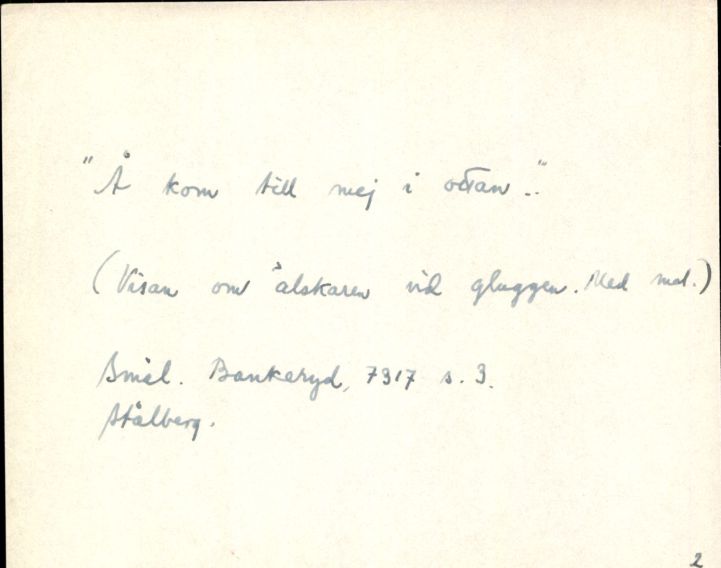 "Å kom till mej i ottan.."
(Visan om älskaren vid gluggen. Med mel.)
Smål. Bankeryd, 7317 s. 3.
Stålberg.
2